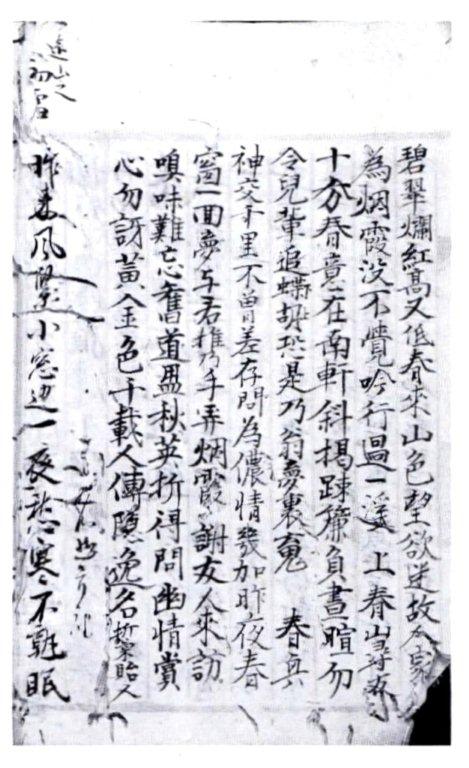 碧翠爛紅高又低春来山色望欲迷故人家
為烟霞没不覺吟行過一溪 上春山尋友
十分春意在南軒斜揭踈簾負晝暄勿
令兒輩追恐是乃翁夢裏䰟 春真
神交千里不曾差存問為儂情幾加昨夜春
窗一回夢与君携手弄烟霞 謝友人来訪
嗅味難忘舊道盟秋英折得問幽情賞
心勿訝黃金色千載人傳隱逸名 菊貽人
遠山之初雪
昨来風緊小窓邊一夜愁寒不熟眠